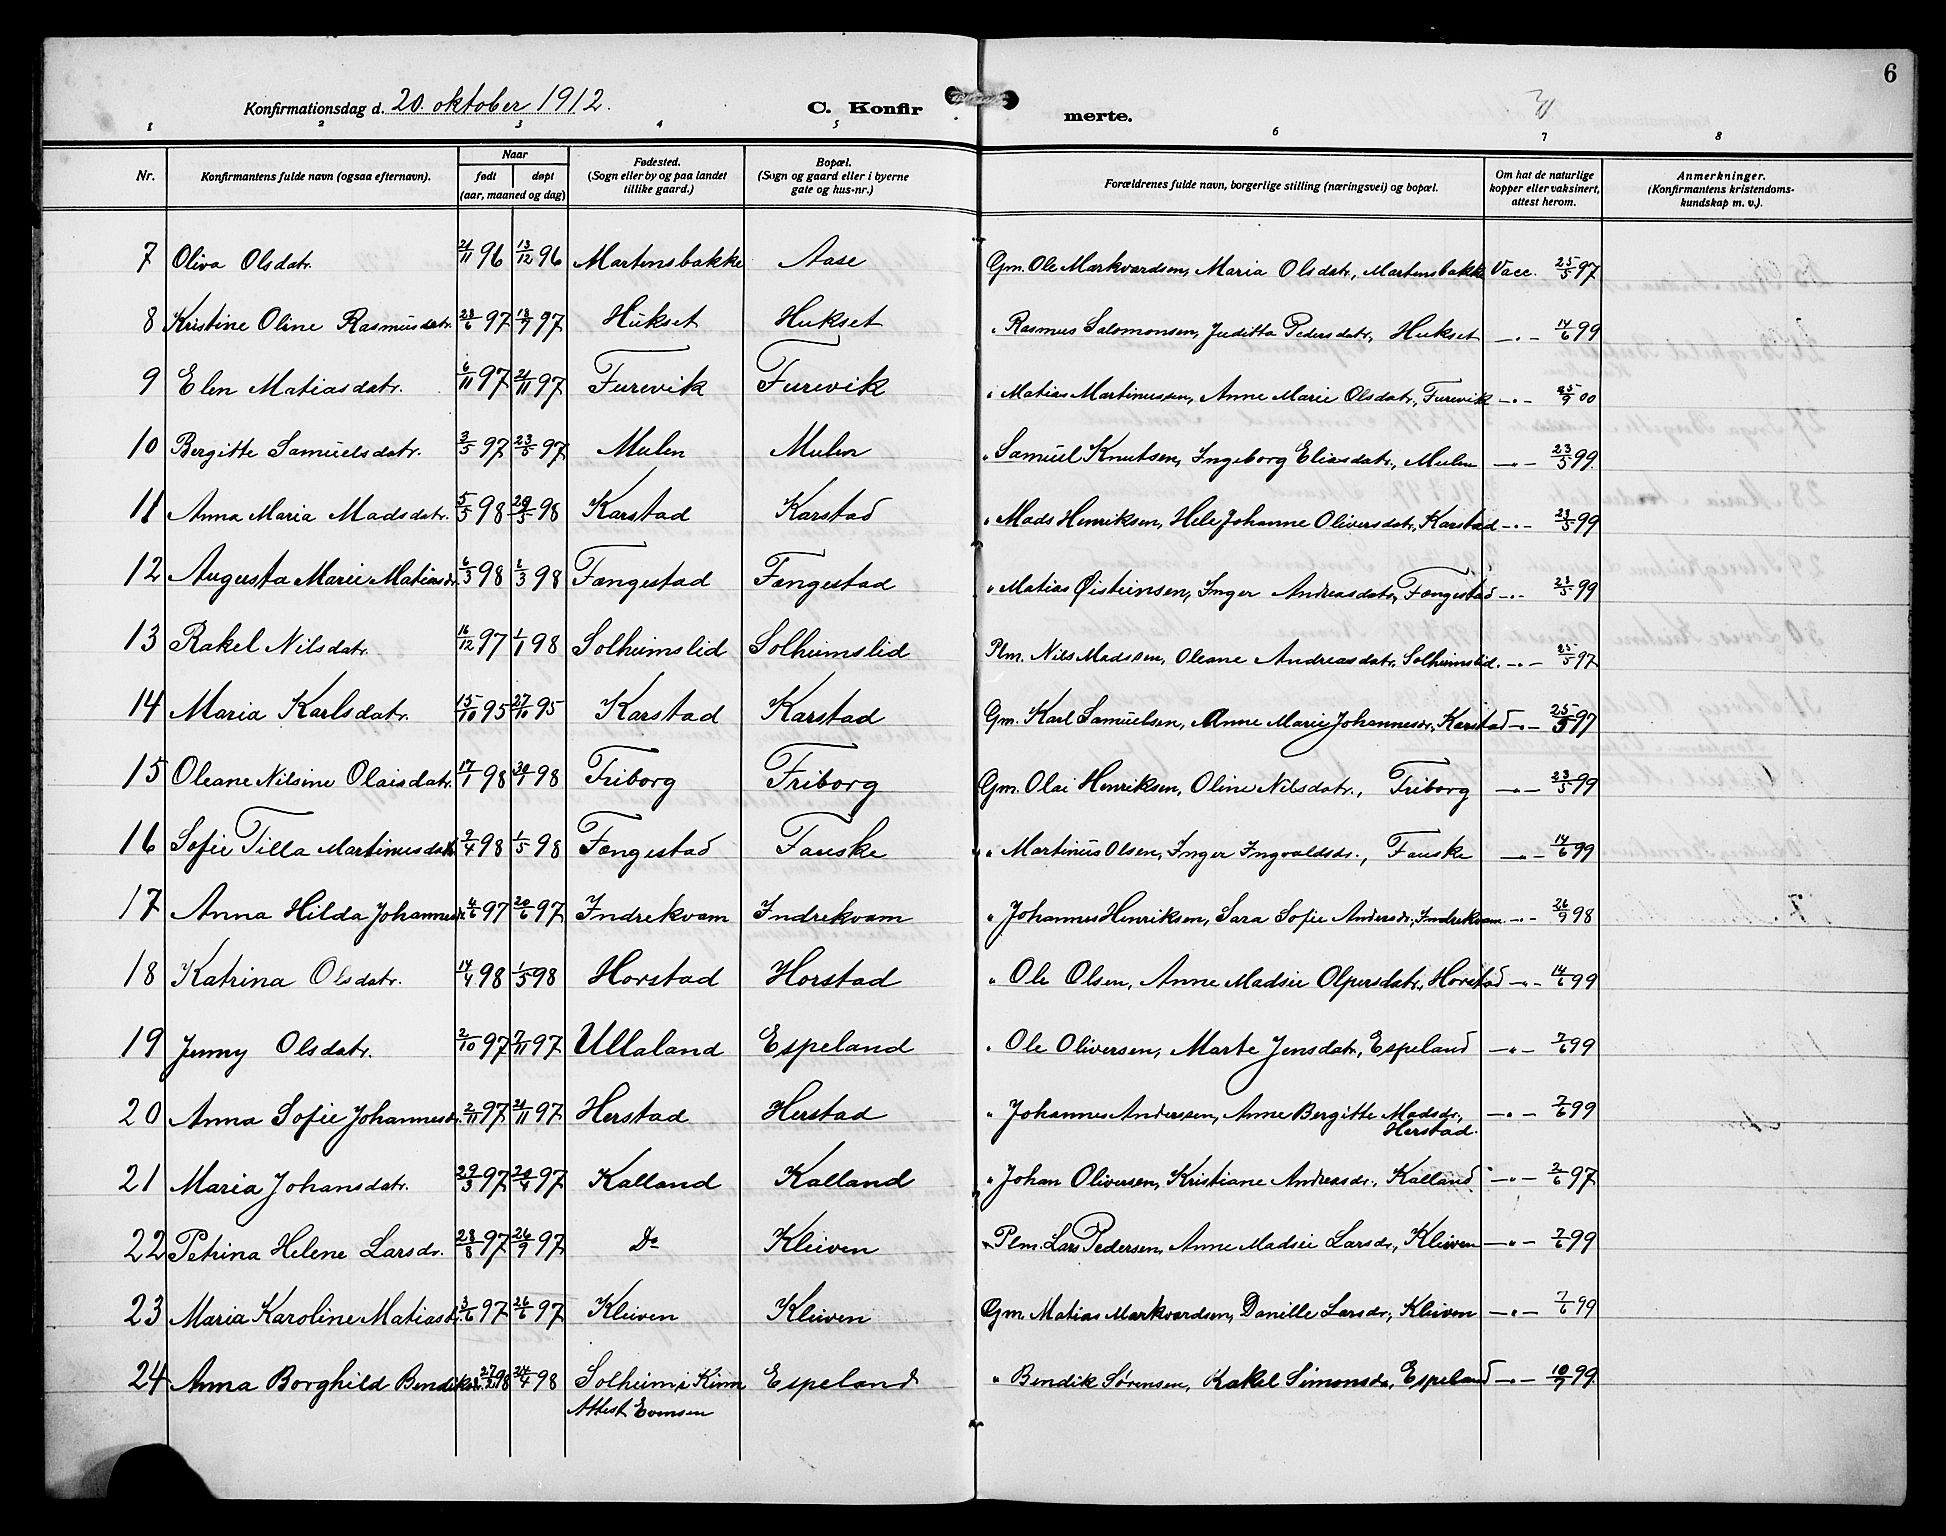 6
Konfirmationsdag d. 20. oktober 1912.
C. Konfir
merte.
1 2 3 4 5 6 7 8
Nr.
Konfirmantens fulde navn (ogsaa efternavn).
Naar
født døpt
(aar, maaned og dag)
Fødested.
(Sogn eller by og paa landet
tillike gaard.)
Bopæl.
(Sogn og gaard eller i byerne
gate og hus-nr.)
Forældrenes fulde navn, borgerlige stilling (næringsvei) og bopæl.
Om hat de naturlige
kopper eller vaksinert,
attest herom.
Anmerkninger.
(Konfirmantens kristendoms-
kundskap m. v.).
7 Oliva Olsdatr. 21/11 96 13/12 96 Martensbakke Aase Gm. Ole Markvardsen, Maria Olsdatr., Martensbakke Vacc. 25/5 97
8 Kristine Oline Rasmusdatr. 28/6 97 18/7 97 Hukset Hukset " Rasmus Salomonsen, Juditta Pedersdatr, Hukset —"— 14/6 99
9 Elen Matiasdatr. 6/11 97 21/11 97 Furevik Furevik " Matias Martinussen, Anne Marie Olsdatr., Furevik —"— 25/9 00
10 Bergitte Samuelsdatr. 3/5 97 23/5 97 Mulen Mulen " Samuel Knutsen, Ingeborg Eliasdatr., Mulen —"— 23/5 99
11 Anna Maria Madsdatr. 5/5 98 20/5 98 Karstad Karstad " Mads Henriksen, Hele Johanne Oliversdatr, Karstad —"— 23/5 99
12 Augusta Marie Matiasdr. 6/3 98 98 Fængestad Fængestad " Matias Øisteinsen, Inger Andreasdatr, Fængestad —"— 23/5 99
13 Rakel Nilsdatr. 16/12 97 1/1 98 Solheimslid Solheimslid Plm. Nils Madssen, Oleane Andreasdatr, Solheimslid. —"— 25/5 97
14 Maria Karlsdatr. 15/10 95 27/10 95 Karstad Karstad Gm. Karl Samuelsen, Anne Marie Johannesdr, Karstad —"— 25/5 97
15 Oleane Nilsine Olaisdatr. 17/1 98 30/1 98 Friborg Friborg Gm. Olai Henriksen, Oline Nilsdatr., Friborg —"— 23/5 99
16 Sofie Tilla Martinusdatr 9/4 98 1/5 98 Fængestad Fauske " Martinus Olsen, Inger Ingvaldsdr., Fauske —"— 14/6 99
17 Anna Hilda Johannesdr 4/6 97 20/6 97 Indrekvam Indrekvam " Johannes Henriksen, Sara Sofie Andersdr., Indrekvam —"— 26/9 98
18 Katrina Olsdatr. 14/4 98 1/5 98 Horstad Horstad " Ole Olsen, Anne Madsie Olpersdatr, Horstad —"— 14/6 99
19 Jenny Olsdatr. 2/10 97 7/11 97 Ullaland Espeland " Ole Oliversen, Marte Jensdatr, Espeland —"— 7/6 99
20 Anna Sofie Johannesdr. 2/11 97 21/11 97 Herstad Herstad " Johannes Anderssen, Anne Bergitte Madsdr., —"— 7/6 99
Herstad.
21 Maria Johansdatr. 29/3 97 20/4 97 Kalland Kalland " Johan Oliversen, Kristiane Andreasdr., Kalland —"— 2/6 97
22 Petrina Helene Larsdr. 28/8 97 26/9 97 Do Kleiven Plm. Lars Pedersen, Anne Madsie Larsdr., Kleiven —"— 7/6 99
23 Maria Karoline Matiasdr. 3/6 97 26/6 97 Kleiven Kleiven Gm. Matias Markvardsen, Danille Larsdr., Kleiven —"— 7/6 99
24 Anna Borghild Bendiksd. 27/2 98 24/4 98 Solheim i Kinn Espeland " Bendik Sørensen, Rakel Simonsdr, Espeland —"— 10/7 99.
Attest